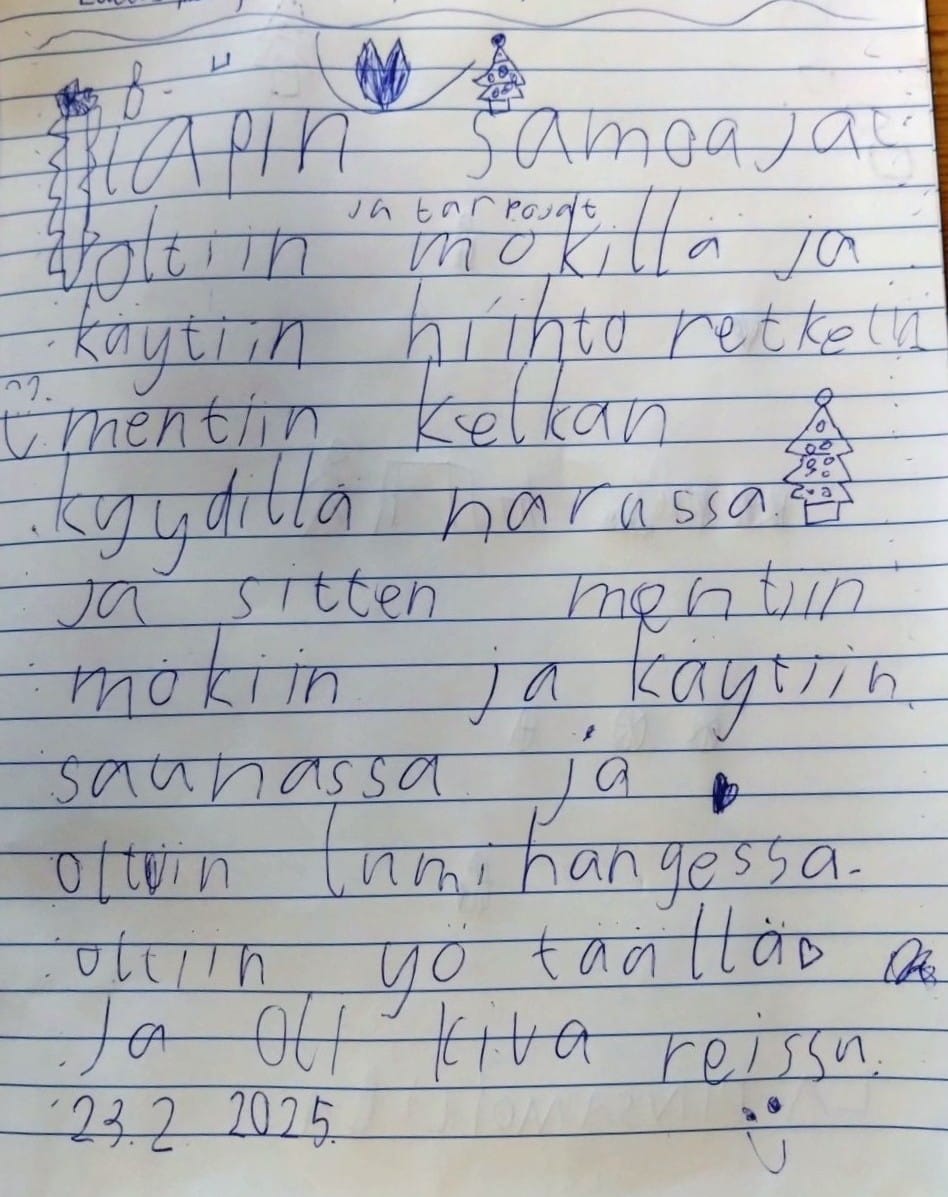 lapin samoajat
ja tarpojat
oltiin mökillä ja
käytiin hiihto retkellä
mentiin kelkan
kyydillä narussa.
ja sitten mentiin
mökiin ja käytiin
saunassa ja
oltiin lumihangessa.
oltiin yö täällä
Ja oli kiva reissu.
23.2 2025.